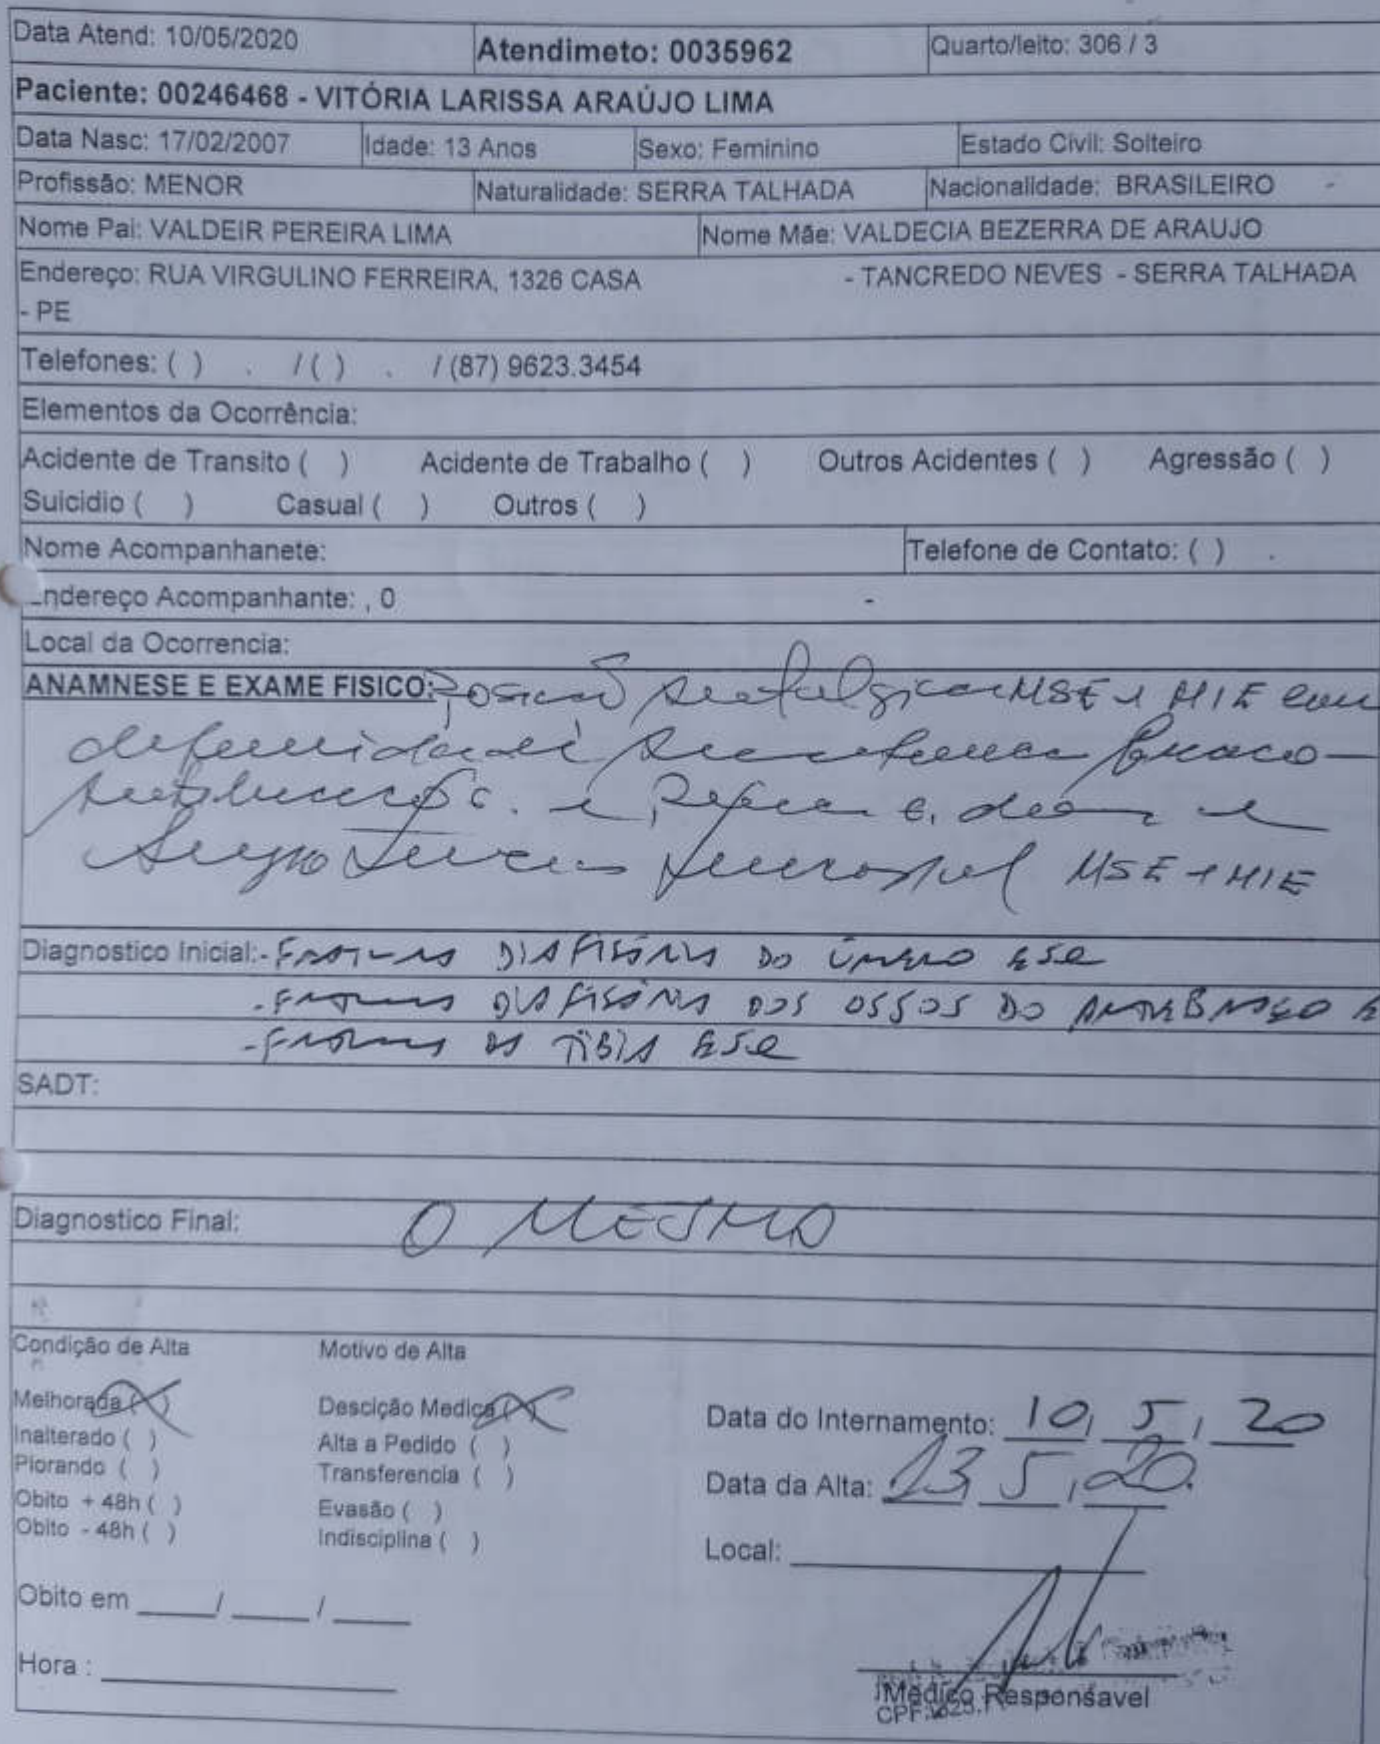 Data Atend: 10/05/2020 Atendimeto: 0035962 Quarto/leito: 306 / 3
Paciente: 00246468 - VITÓRIA LARISSA ARAÚJO LIMA
Data Nasc: 17/02/2007 Idade: 13 Anos Sexo: Feminino Estado Civil: Solteiro
Profissão: MENOR Naturalidade: SERRA TALHADA Nacionalidade: BRASILEIRO -
Nome Pai: VALDEIR PEREIRA LIMA Nome Mãe: VALDECIA BEZERRA DE ARAUJO
Endereço: RUA VIRGULINO FERREIRA, 1326 CASA - TANCREDO NEVES - SERRA TALHADA
- PE
Telefones: ( ) . / ( ) . / (87) 9623.3454
Elementos da Ocorrência:
Acidente de Transito ( ) Acidente de Trabalho ( ) Outros Acidentes ( ) Agressão ( )
Suicidio ( ) Casual ( ) Outros ( )
Nome Acompanhanete: Telefone de Contato: ( ) .
Endereço Acompanhante: , 0 -
Local da Ocorrencia:
ANAMNESE E EXAME FISICO: Posição MSE e MIE com
deformidade
MSE e MIE
Diagnostico Inicial: - DIAFISÁRIA DO ÚMERO ESQ
- DIAFISÁRIA DOS OSSOS DO ANTEBRAÇO E
- TÍBIA ESQ
SADT:
Diagnostico Final: O MESMO
Condição de Alta Motivo de Alta
Melhorada (X) Descição Medica (X) Data do Internamento: 10 / 5 / 20
Inalterado ( ) Alta a Pedido ( )
Piorando ( ) Transferencia ( ) Data da Alta: 13 / 5 / 20
Obito + 48h ( ) Evasão ( )
Obito - 48h ( ) Indisciplina ( ) Local:
Obito em ____/____/____
Hora :
Médico Responsavel
CPF: